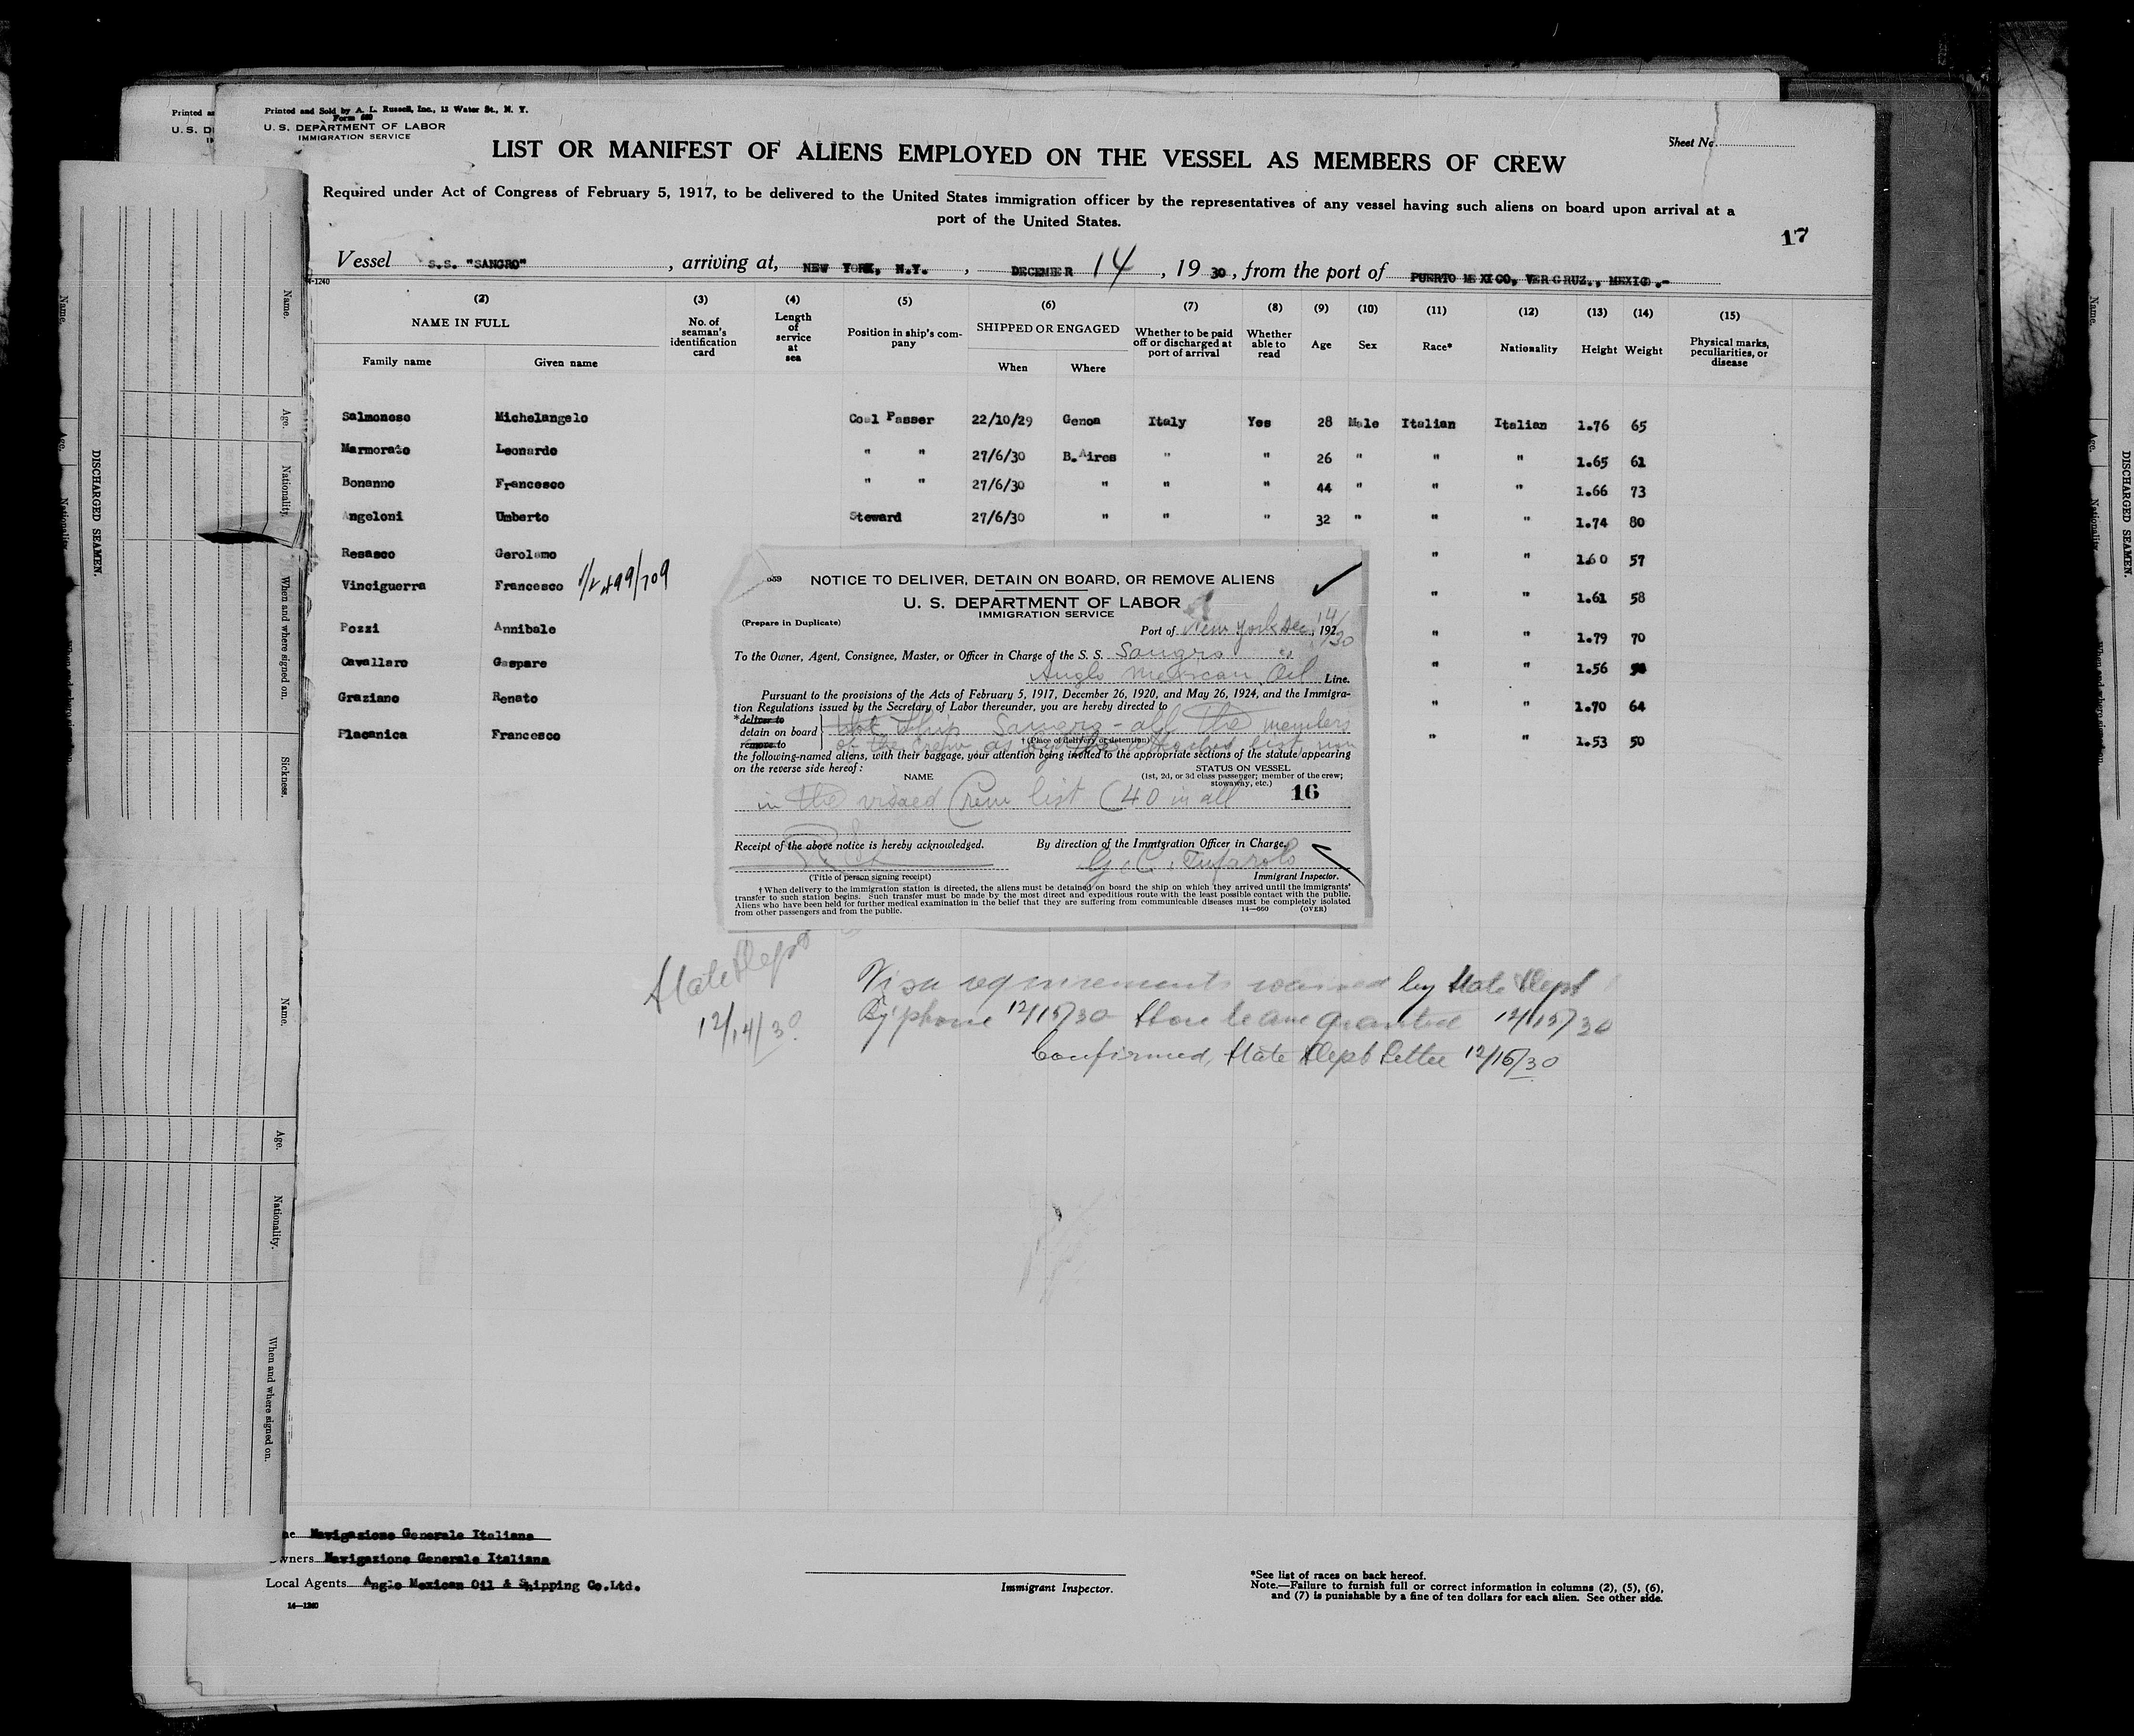 Printed and Sold by A. L. Russell, Inc., 13 Water St., N. Y.
Form 680
U. S. DEPARTMENT OF LABOR
IMMIGRATION SERVICE
Printed
U. S. D
Sheet No.
LIST OR MANIFEST OF ALIENS EMPLOYED ON THE VESSEL AS MEMBERS OF CREW
Required under Act of Congress of February 5, 1917, to be delivered to the United States immigration officer by the representatives of any vessel having such aliens on board upon arrival at a
port of the United States.
17
Vessel S.S. "SANGRO", arriving at, NEW YORK, N.Y., DECEMBER 14, 1930, from the port of PUERTO MEXICO, VERCRUZ., MEXICO.-
14-1240
(2) (3) (4) (5) (6) (7) (8) (9) (10) (11) (12) (13) (14) (15)
NAME IN FULL
Family name Given name
No. of seaman's identification card
Length of service at sea
Position in ship's company
SHIPPED OR ENGAGED
When Where
Whether to be paid off or discharged at port of arrival
Whether able to read
Age Sex Race* Nationality Height Weight
Physical marks, peculiarities, or disease
Salmonese Michelangelo Coal Passer 22/10/29 Genoa Italy Yes 28 Male Italian Italian 1.76 65
Marmorato Leonardo " " 27/6/30 B.Aires " " 26 " " " 1.65 61
Bonanno Francesco " " 27/6/30 " " " 44 " " " 1.66 73
Angeloni Umberto Steward 27/6/30 " " " 32 " " " 1.74 80
Resasco Gerolamo " " 1.60 57
Vinciguerra Francesco " " 1.61 58
Pozzi Annibale " " 1.79 70
Cavallaro Gaspare " " 1.56
Graziano Renato " " 1.70 64
Placanica Francesco " " 1.53 50
659
NOTICE TO DELIVER, DETAIN ON BOARD, OR REMOVE ALIENS
U. S. DEPARTMENT OF LABOR
IMMIGRATION SERVICE
(Prepare in Duplicate)
Port of New York Dec 14/30, 192
To the Owner, Agent, Consignee, Master, or Officer in Charge of the S. S. Sangro
Anglo Mexican Oil Line.
Pursuant to the provisions of the Acts of February 5, 1917, December 26, 1920, and May 26, 1924, and the Immigra-
tion Regulations issued by the Secretary of Labor thereunder, you are hereby directed to
*deliver to
detain on board
remove to
Ship Sangro - all the members
of the crew as the attached list
†(Place of delivery or detention)
the following-named aliens, with their baggage, your attention being invited to the appropriate sections of the statute appearing
on the reverse side hereof:
NAME
STATUS ON VESSEL
(1st, 2d, or 3d class passenger; member of the crew;
stowaway, etc.)
in the visaed Crew list (40 in all
16
Receipt of the above notice is hereby acknowledged.
By direction of the Immigration Officer in Charge.
G. C. Tufarolo
(Title of person signing receipt)
Immigrant Inspector.
†When delivery to the immigration station is directed, the aliens must be detained on board the ship on which they arrived until the immigrants'
transfer to such station begins. Such transfer must be made by the most direct and expeditious route with the least possible contact with the public.
Aliens who have been held for further medical examination in the belief that they are suffering from communicable diseases must be completely isolated
from other passengers and from the public.
14—660 (OVER)
State Dept
12/14/30
Visa requirements waived by State Dept
By phone 12/15/30 Shore leave granted 12/15/30
Confirmed, State Dept Letter 12/16/30
Navigazione Generale Italiana
Owners Navigazione Generale Italiana
Local Agents Anglo Mexican Oil & Shipping Co.Ltd.
14—1240
Immigrant Inspector.
*See list of races on back hereof.
Note.—Failure to furnish full or correct information in columns (2), (5), (6),
and (7) is punishable by a fine of ten dollars for each alien. See other side.
DISCHARGED SEAMEN.
Name.
Age.
Nationality.
When and where signed on.
Sickness.
Name.
Age.
Nationality.
When and where signed on.
Name.
Age.
Nationality
DISCHARGED SEAMEN.